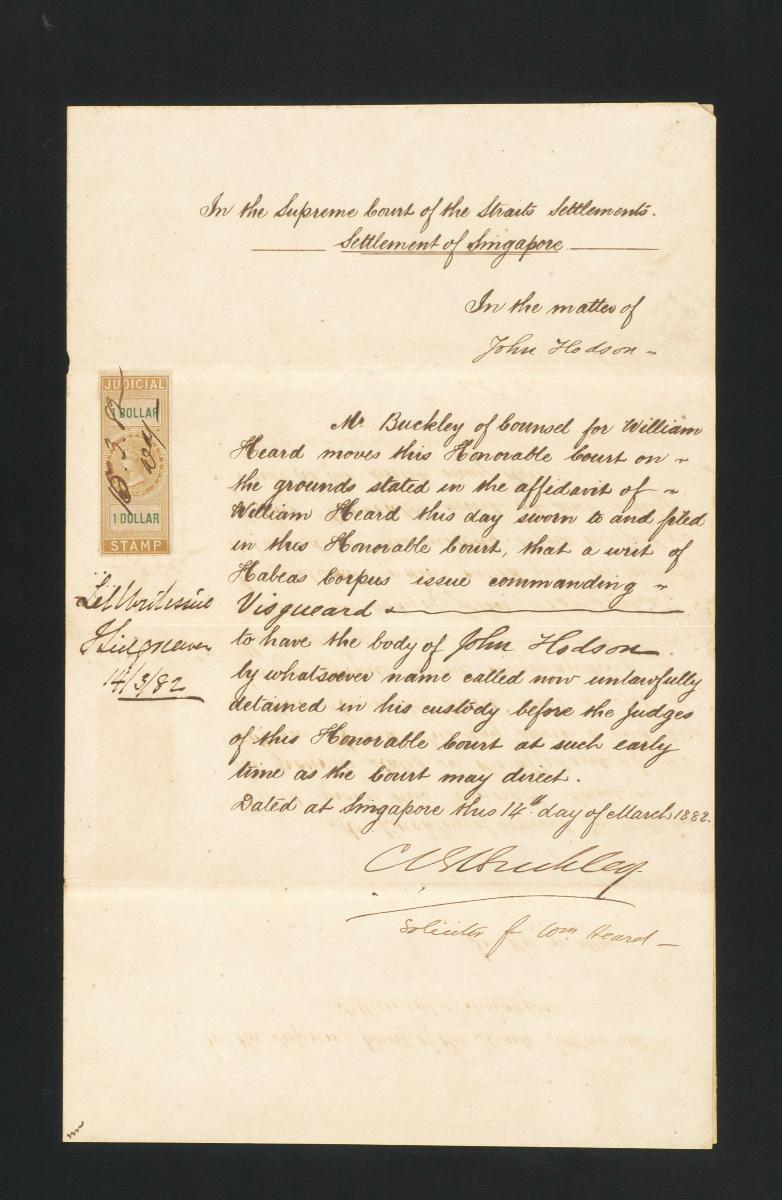 In the Supreme Court of the Straits Settlements.
Settlement of Singapore
In the matter of
John Hodson -
JUDICIAL
1 DOLLAR
1 DOLLAR
STAMP
Mr Buckley of Counsel for William
Heard moves this Honorable Court on
the grounds stated in the affidavit of
William Heard this day sworn to and filed
in this Honorable Court, that a writ of
Habeas Corpus issue commanding
Visgueard
to have the body of John Hodson
by whatsoever name called now unlawfully
detained in his custody before the Judges
of this Honorable Court at such early
time as the Court may direct.
Dated at Singapore this 14th day of March 1882.
14/3/82
C B Buckley
Solicitor for Wm Heard -